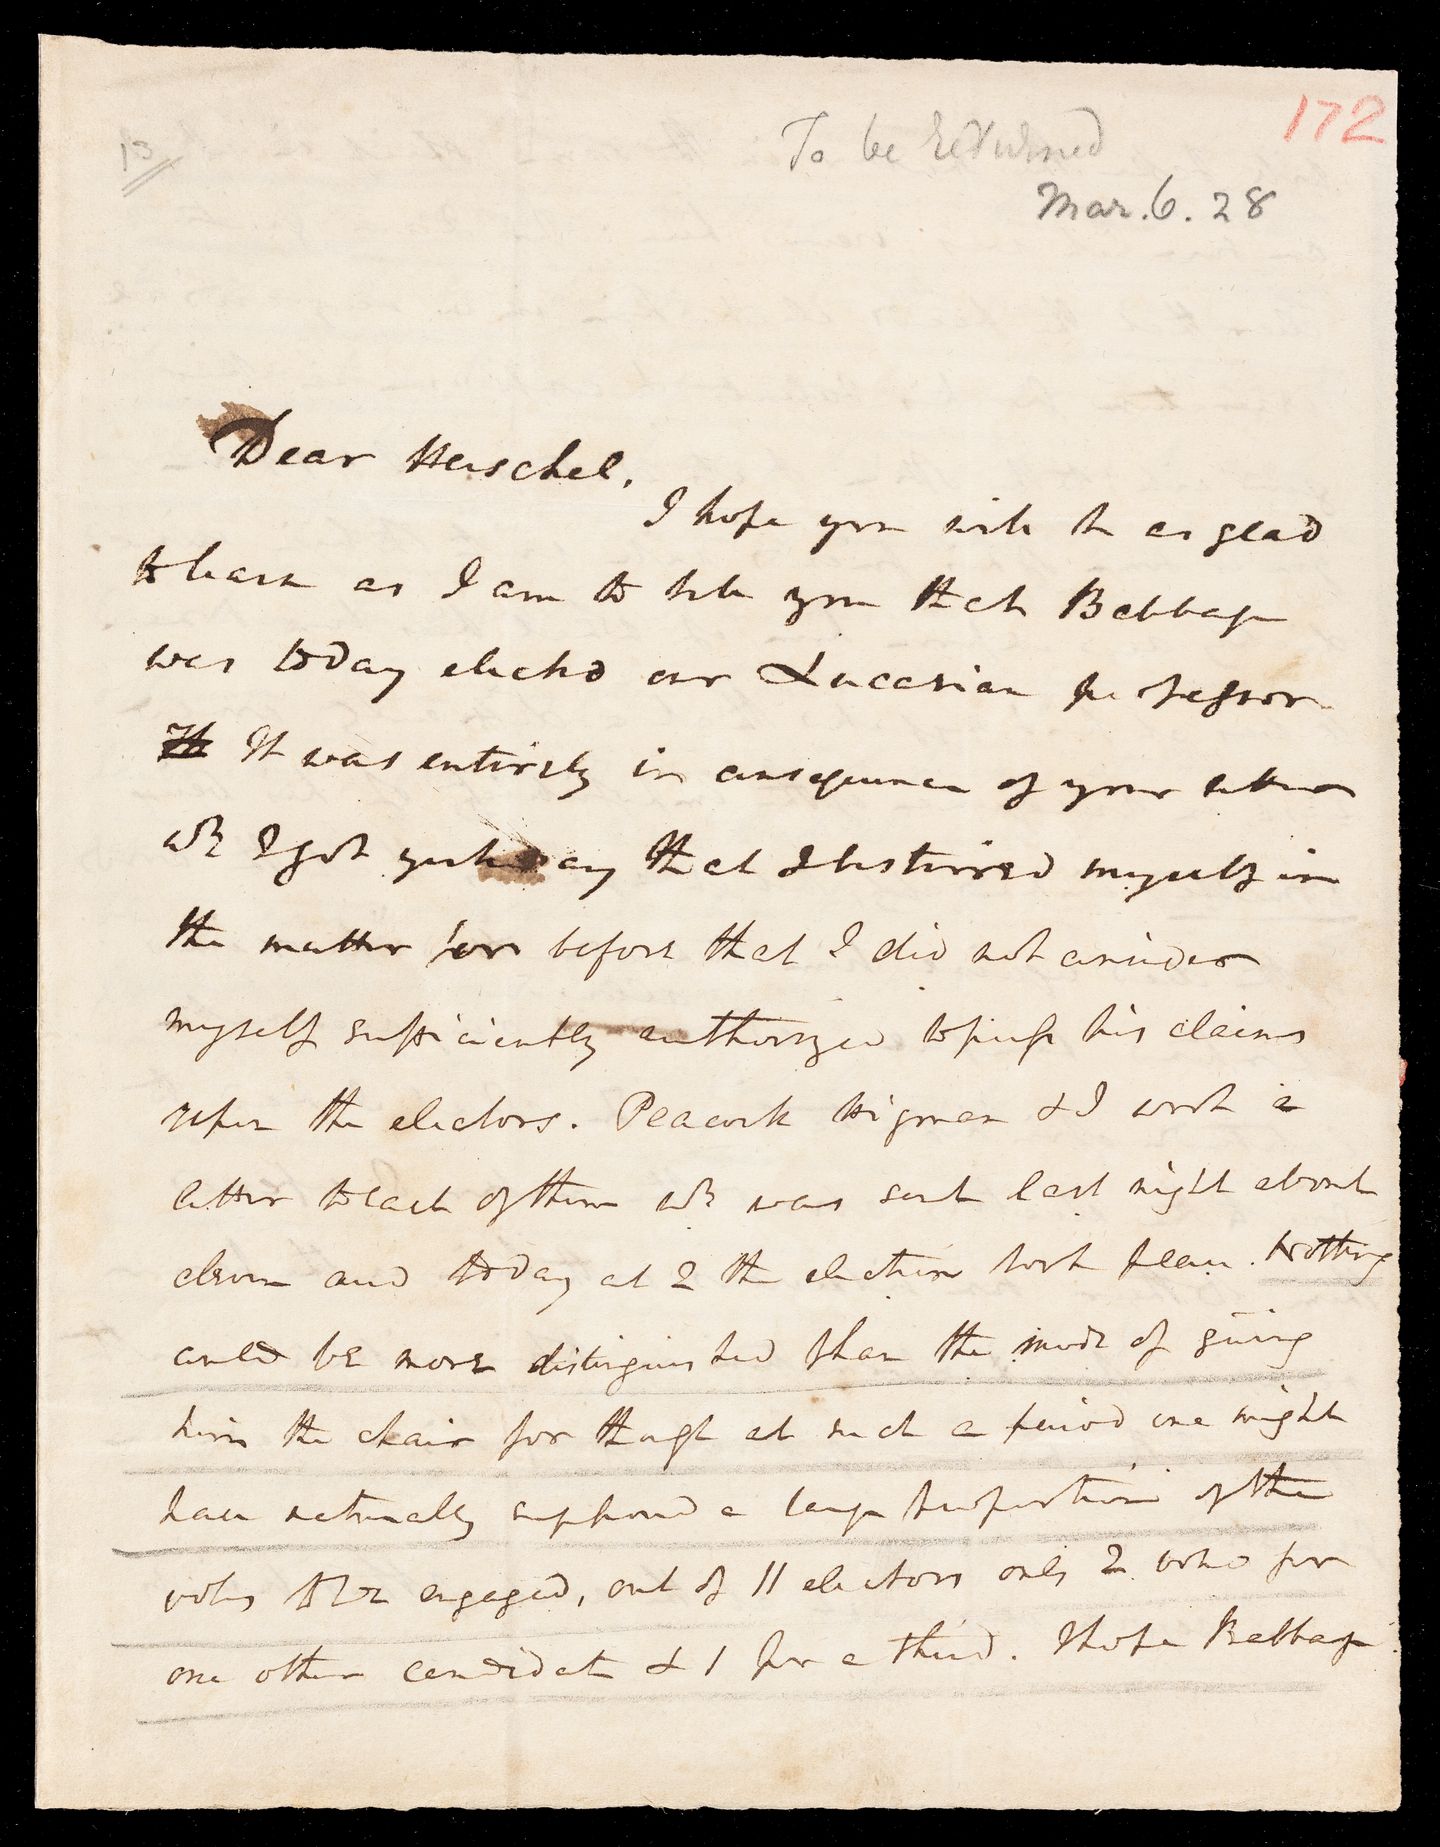 172
13
To be returned
Mar. 6. 28
Dear Herschel,
I hope you will be as glad
to hear as I am to tell you that Babbage
was today elected our Lucasian professor
It It was entirely in consequence of your letter
wh I got yesterday that I bestirred myself in
the matter for before that I did not consider
myself sufficiently authorized to push his claims
upon the electors. Peacock Higman & I wrote a
letter to each of them wh was sent last night about
eleven and today at 2 the election took place. Nothing
could be more distinguished than the mode of giving
him the chair for though at such a period one might
have naturally supposed a large proportion of the
votes to be engaged, out of 11 electors only 2 voted for
one other candidate & 1 for a third. I hope Babbage